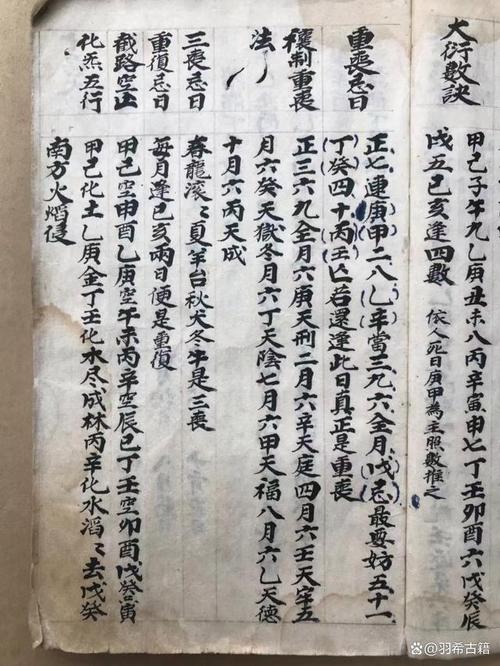 大衍数訣
甲己子午九乙庚丑未八丙辛寅申七丁壬卯酉六戊癸辰
戌五巳亥逢四數 依人死日庚甲為主照數推之
重喪忌日
正七連庚甲二八乙辛當三九六仝月戊己最要妨五十一
丁癸四十丙壬凶若還逢此日真正是重喪
禳制重喪
法
正三六九仝月六庚天刑二月六辛天庭四月六壬天牢五
月六癸天獄冬月六丁天陰七月六甲天福八月六乙天德
十月六丙天成
三喪忌日
春龍滚〻夏羊台秋犬冬牛是三喪
重復忌日
每月逢巳亥兩日便是重復
截路空亡
甲己空申酉乙庚空午未丙辛空辰巳丁壬空卯酉戊癸寅
化炁五行
甲己化土乙庚金丁壬化水尽成林丙辛化水滔〻去戊癸
南方火焰侵
羽希古籍